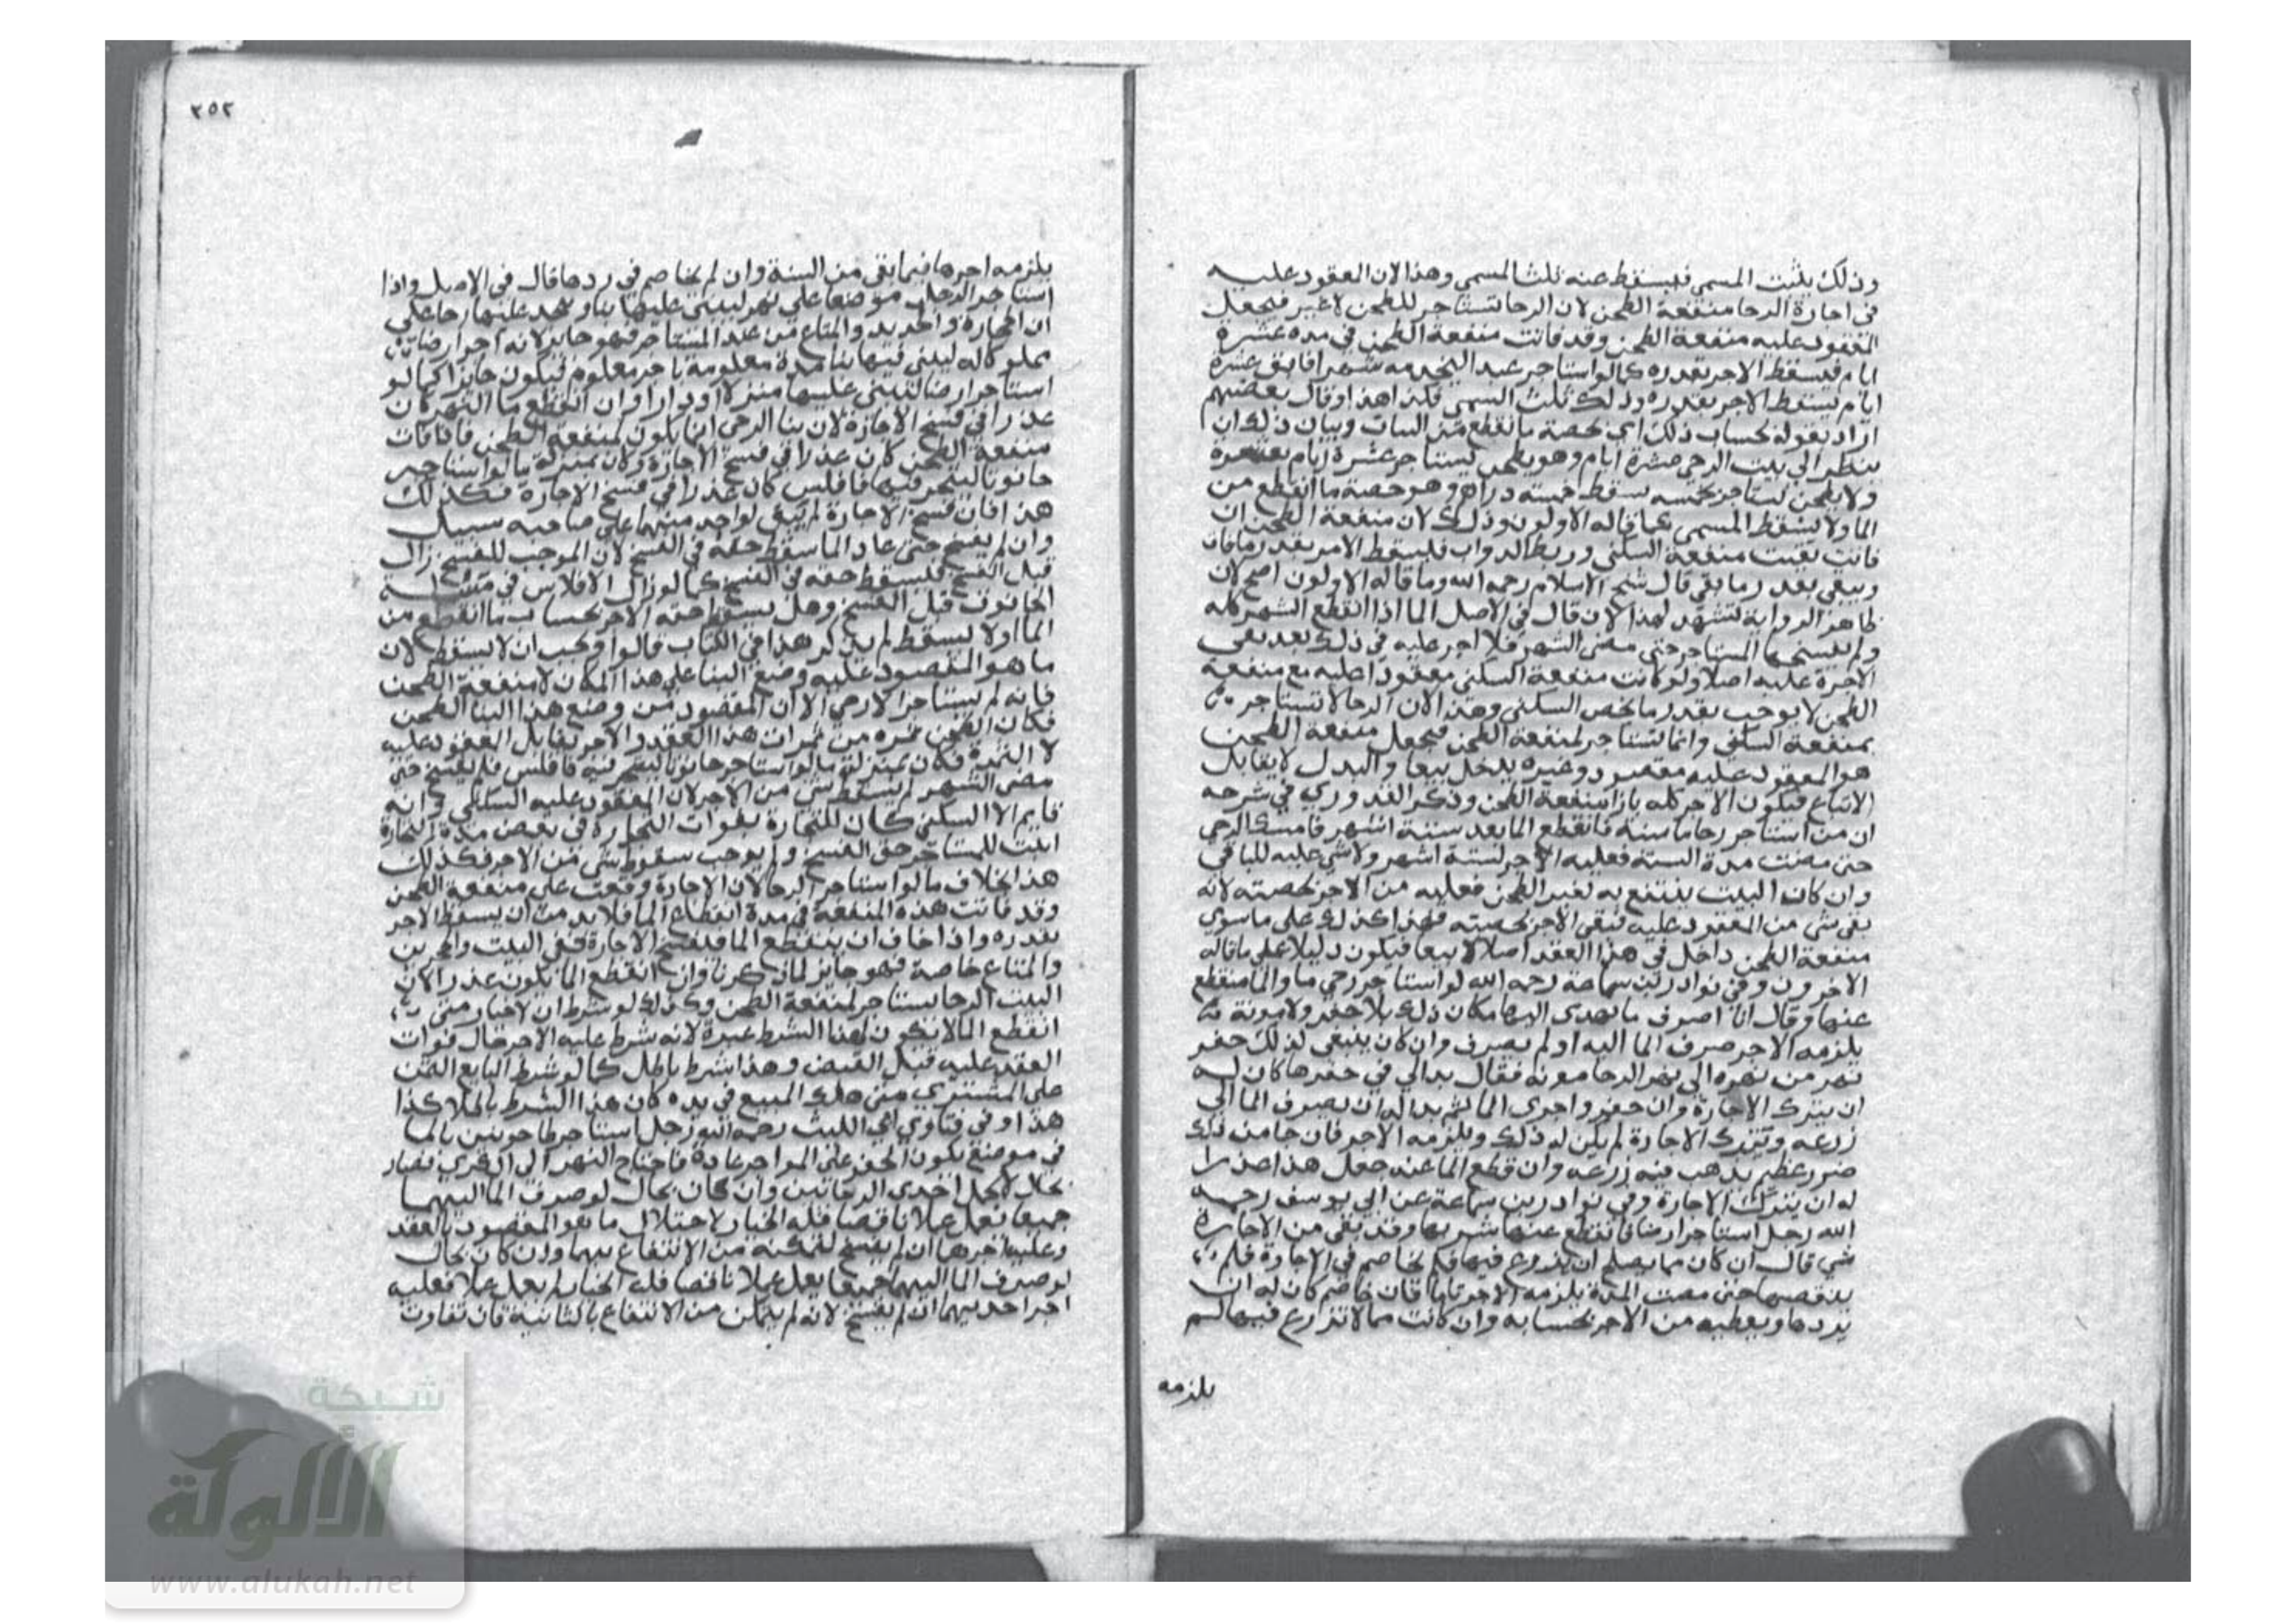 وذلك ثلث المسمى فليسقط عنه ثلث المسمى وهذا لان العقود عليه
في اجارة الرحا منفعة الطحن لان الرحا تستاجر للطحن لا غير فيجعل
المعقود عليه منفعة الطحن وقد فاتت منفعة الطحن في مدة عشرة
ايام فيسقط الاجر بقدره كما لو استاجر عبدا ليخدمه شهرا فابق عشرة
ايام يسقط الاجر بقدره وذلك ثلث المسمى فكذا هذا وقال بعضهم
اراد بقوله بحساب ذلك اي بحصة ما انقطع من البيات وبيان ذلك ان
ينظر الى بيت الرحى عشرة ايام وهو يطحن ليستاجر عشرة ايام
ولا يطحن يستاجر بخمسه سقط خمسة دراهم وهو حصة ما انقطع من
الما ولا يسقط المسمى كما قاله الاولون وذلك لان منفعة الطحن ان
فاتت بقيت منفعة السكنى وربط الدواب فليسقط الاجر بقدر ما فات
ويبقى بقدر ما بقي قال شيخ الاسلام رحمه الله وما قاله الاولون اصح لان
ظاهر الرواية تشهد لهذا لان قال في الاصل الما اذا انقطع الشهر كله
ولم يفسخها المستاجر حتى مضى الشهر فلا اجر عليه في ذلك فقد نفى
الاجرة عليه اصلا ولو كانت منفعة السكنى معقودا عليه مع منفعة
الطحن لا يوجب بقدر ما يخص السكنى وهذا لان الرحا لا تستاجر
بمنفعة السكنى وانما تستاجر لمنفعة الطحن فيجعل منفعة الطحن
هو المعقود عليه مقصود وغيره يدخل تبعا والبدل لا يقابل
الاتباع فيكون الاجر كله بازا منفعة الطحن وذكر القدوري في شرحه
ان من استاجر رحا ما سنة فانقطع الما بعد ستة اشهر فامسك الرحى
حتى مضت مدة السنه فعليه الاجر لستة اشهر ولا شي عليه للباقي
وان كان البيت ينتفع به لغير الطحن فعليه من الاجر بحصته لانه
بقي شي من المعقود عليه فبقي الاجر بحصته فهذا كذلك على ما سوى
منفعة الطحن داخل في هذا العقد اصلا لا تبعا فيكون دليلا على ما قاله
الاخرون وفي نوادر ابن سماعة رحمه الله لو استاجر رحى ما والما منقطع
عنها وقال انا اصرف ما نهري اليها مكان ذلك بلا حفر ولا مونة
يلزمه الاجر صرف الما اليه او لم يصرف وان كان ينبغي لذلك حفر
نهر من نهره الى نهر الرحا مونه فقال بدا لي في حفرها كان له
ان يترك الاجارة وان حفر واجرى الما ثم بدا له ان يصرف الما الى
زرعه وتترك الاجارة لم يكن له ذلك ويلزمه الاجر فان جا من ذلك
ضرر عظيم يذهب فيه زرعه وان قطع الما عنه جعل هذا عذرا
له ان يترك الاجارة وفي نوادر بن سماعة عن ابي يوسف رحمه
الله رجل استاجر ارضا فانقطع عنها شربها وقد بقي من الاجارة
شي قال ان كان مما يصلح ان يزرع فيها فلم يخاصم في الاجارة فلم
ينقضها حتى مضت المدة يلزمه الاجر تاما فان خاصم كان له ان
يردها ويعطيه من الاجر بحسابه وان كانت مما لا تزرع فيها لم
يلزمه
٢٥٢
يلزمه اجرها فيما بقي من السنة وان لم يخاصم في ردها قال في الاصل واذا
استاجر الرجل موضعا على نهر ليبني عليها بنا ويتخذ عليها رحا على
ان الحجارة والحديد والمتاع من عند المستاجر فهو جايز لانه اجر ارضا
مملوكا له ليبني فيها بنا مدة معلومة باجر معلوم فيكون جايزا كما لو
استاجر ارضا ليبني عليها منزلا او دارا وان انقطع ما النهر كان
عذرا في فسخ الاجارة لان بنا الرحى انما يكون لمنفعة الطحن فاذا فات
منفعة الطحن كان عذرا في فسخ الاجارة وكان بمنزلة ما لو استاجر
حانوتا ليتجر فيها فافلس كان عذرا في فسخ الاجارة فكذلك
هذا فان فسخ الاجارة لم يبق لواحد منهما على صاحبه سبيل
وان لم يفسخ حتى عاد الما سقط حقه في الفسخ لان الموجب للفسخ زال
قبل الفسخ فليسقط حقه في الفسخ كما لو زال الافلاس في مسئلة
الحانوت قبل الفسخ وهل يسقط حقه الاجر بحساب ما انقطع من
الما او لا يسقط لم يذكر هذا في الكتاب قالوا ويجب ان لا يسقط لان
ما هو المقصود عليه وضع البنا على هذا المكان لا منفعة الطحن
فانه لم يستاجر الارض الا ان المقصود من وضع هذا البنا الطحن
فكان الطحن ثمره من ثمرات هذا العقد والاجر يقابل المعقود عليه
لا الثمرة فكان بمنزلة ما لو استاجر حانوتا ليتجر فيه فافلس فلم يفسخ حتى
مضى الشهر لم يسقط شي من الاجر لان المعقود عليه السكنى وانه
قايم الا السكنى كان للتجارة بفوات التجارة في بعض مدة التجارة
اثبت للمستاجر حق الفسخ ولم يوجب سقوط شي من الاجر فكذلك
هذا بخلاف ما لو استاجر الرحا لان الاجارة وقعت على منفعة الطحن
وقد فاتت هذه المنفعة في مدة انقطاع الما فلا بد من ان يسقط الاجر
بقدره واذا خاف ان ينقطع الما فيفسخ الاجارة ففي البيت والحجرين
والمتاع خاصة فهو جايز لما ذكرنا وان انقطع الما يكون عذرا لان
البيت الرحا يستاجر لمنفعة الطحن وكذلك لو شرط ان لا خيار متى
انقطع الما لا يكون لهذا الشرط عبرة لانه شرط عليه الاجر حال فوات
العقد عليه قبل القبض وهذا شرط باطل كما لو شرط البايع الثمن
على المشتري متى هلك المبيع في يده كان هذا الشرط باطلا كذا
هذا وفي فتاوي ابي الليث رحمه الله رجل استاجر طاحونتين بالما
في موضع يكون الحفر على المواجر عادة فاحتاج النهر الى الكري فصار
بحال لا يعمل احدى الرحاتين وان كان بحال لو صرف الما اليهما
جميعا يعمل عملا ناقصا فله الخيار لاختلال ما هو المقصود بالعقد
وعليه اجرها ان لم يفسخ لتمكنه من الانتفاع بهما وان كان بحال
لو صرف الما اليهما جميعا يعمل عملا ناقصا فله الخيار لم يعمل عملا فعليه
اجر احديهما ان لم يفسخ لانه لم يتمكن من الانتفاع بالثانية فان تفاوت
شبكة
الألوكة
www.alukah.net